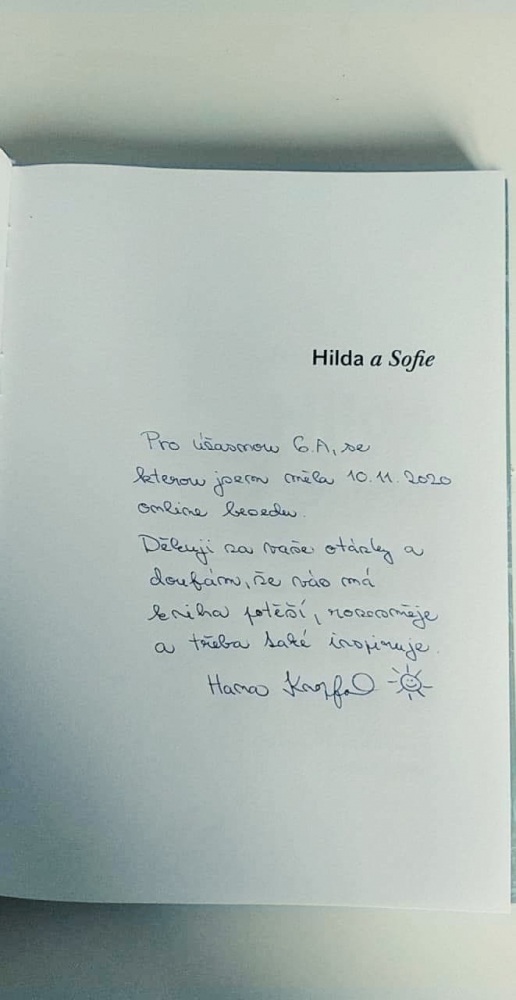 Hilda a Sofie
Pro úžasnou 6.A, se
kterou jsem měla 10.11.2020
online besedu.
Děkuji za vaše otázky a
doufám, že vás má
kniha potěší, rozesměje
a třeba také inspiruje.
Hana